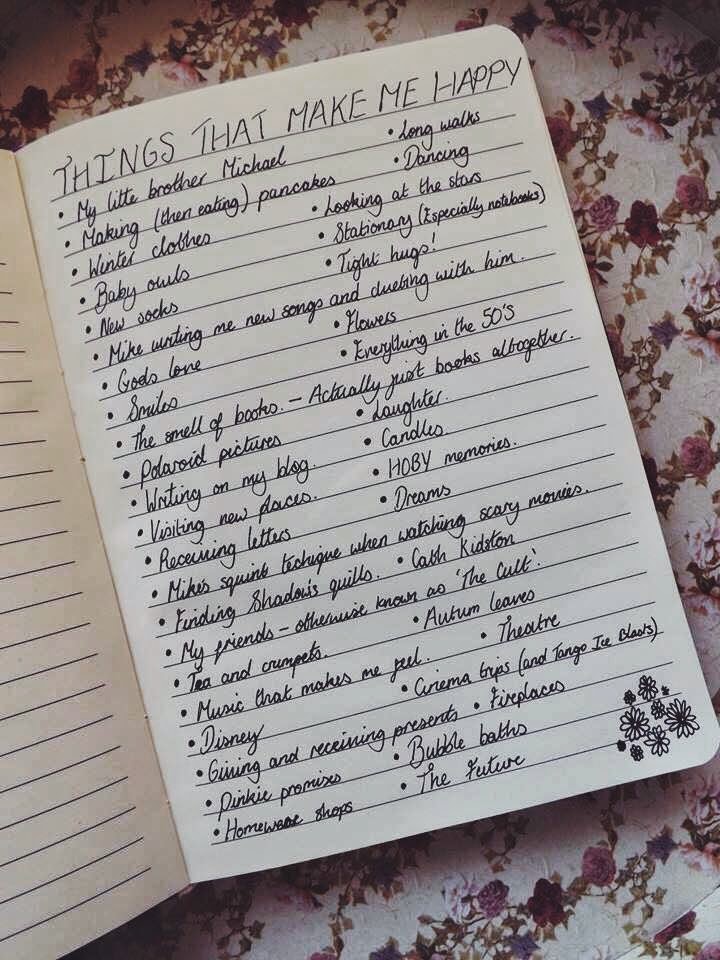 THINGS THAT MAKE ME HAPPY
• My little brother Michael • Long walks
• Making (then eating) pancakes • Dancing
• Winter clothes • Looking at the stars
• Baby owls • Stationary (Especially notebooks)
• New socks • Tight hugs!
• Mike writing me new songs and dueting with him.
• Gods love • Flowers
• Smiles • Everything in the 50's
• The smell of books. – Actually just books altogether.
• Polaroid pictures • Laughter.
• Writing on my blog. • Candles
• Visiting new places. • HOBY memories.
• Receiving letters • Dreams
• Mike's squint techique when watching scary movies.
• Finding Shadow's quills. • Cath Kidston
• My friends – otherwise known as 'The Cult'.
• Tea and crumpets. • Autum leaves
• Music that makes me feel. • Theatre
• Disney • Cinema trips (and Tango Ice Blasts)
• Giving and receiving presents • Fireplaces
• Pinkie promises • Bubble baths
• Homeware shops • The Future